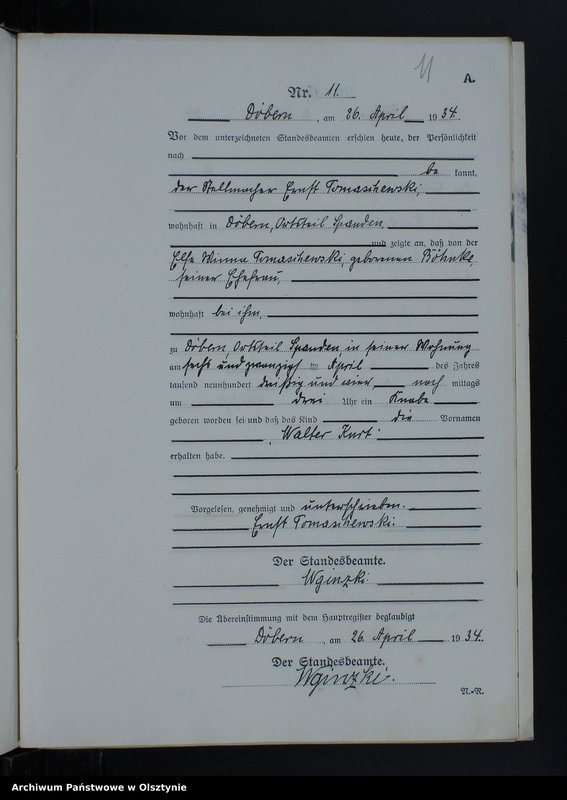 11
A.
Nr. 11.
Döbern, am 26. April 1934.
Vor dem unterzeichneten Standesbeamten erschien heute, der Persönlichkeit
nach
be kannt,
der Stellmacher Ernst Tomaschewski,
wohnhaft in Döbern, Ortsteil Spanden,
und zeigte an, daß von der
Else Minna Tomaschewski, geborenen Böhnke,
seiner Ehefrau,
wohnhaft bei ihm,
zu Döbern, Ortsteil Spanden, in seiner Wohnung
am sechs und zwanzigsten April des Jahres
tausend neunhundert dreißig und vier nach mittags
um drei Uhr ein Knabe
geboren worden sei und daß das Kind die Vornamen
Walter Kurt
erhalten habe.
Vorgelesen, genehmigt und unterschrieben.
Ernst Tomaschewski.
Der Standesbeamte.
Wginzki.
Die Übereinstimmung mit dem Hauptregister beglaubigt
Döbern, am 26. April 1934.
Der Standesbeamte.
Wginzki.
N.-R.
Archiwum Państwowe w Olsztynie